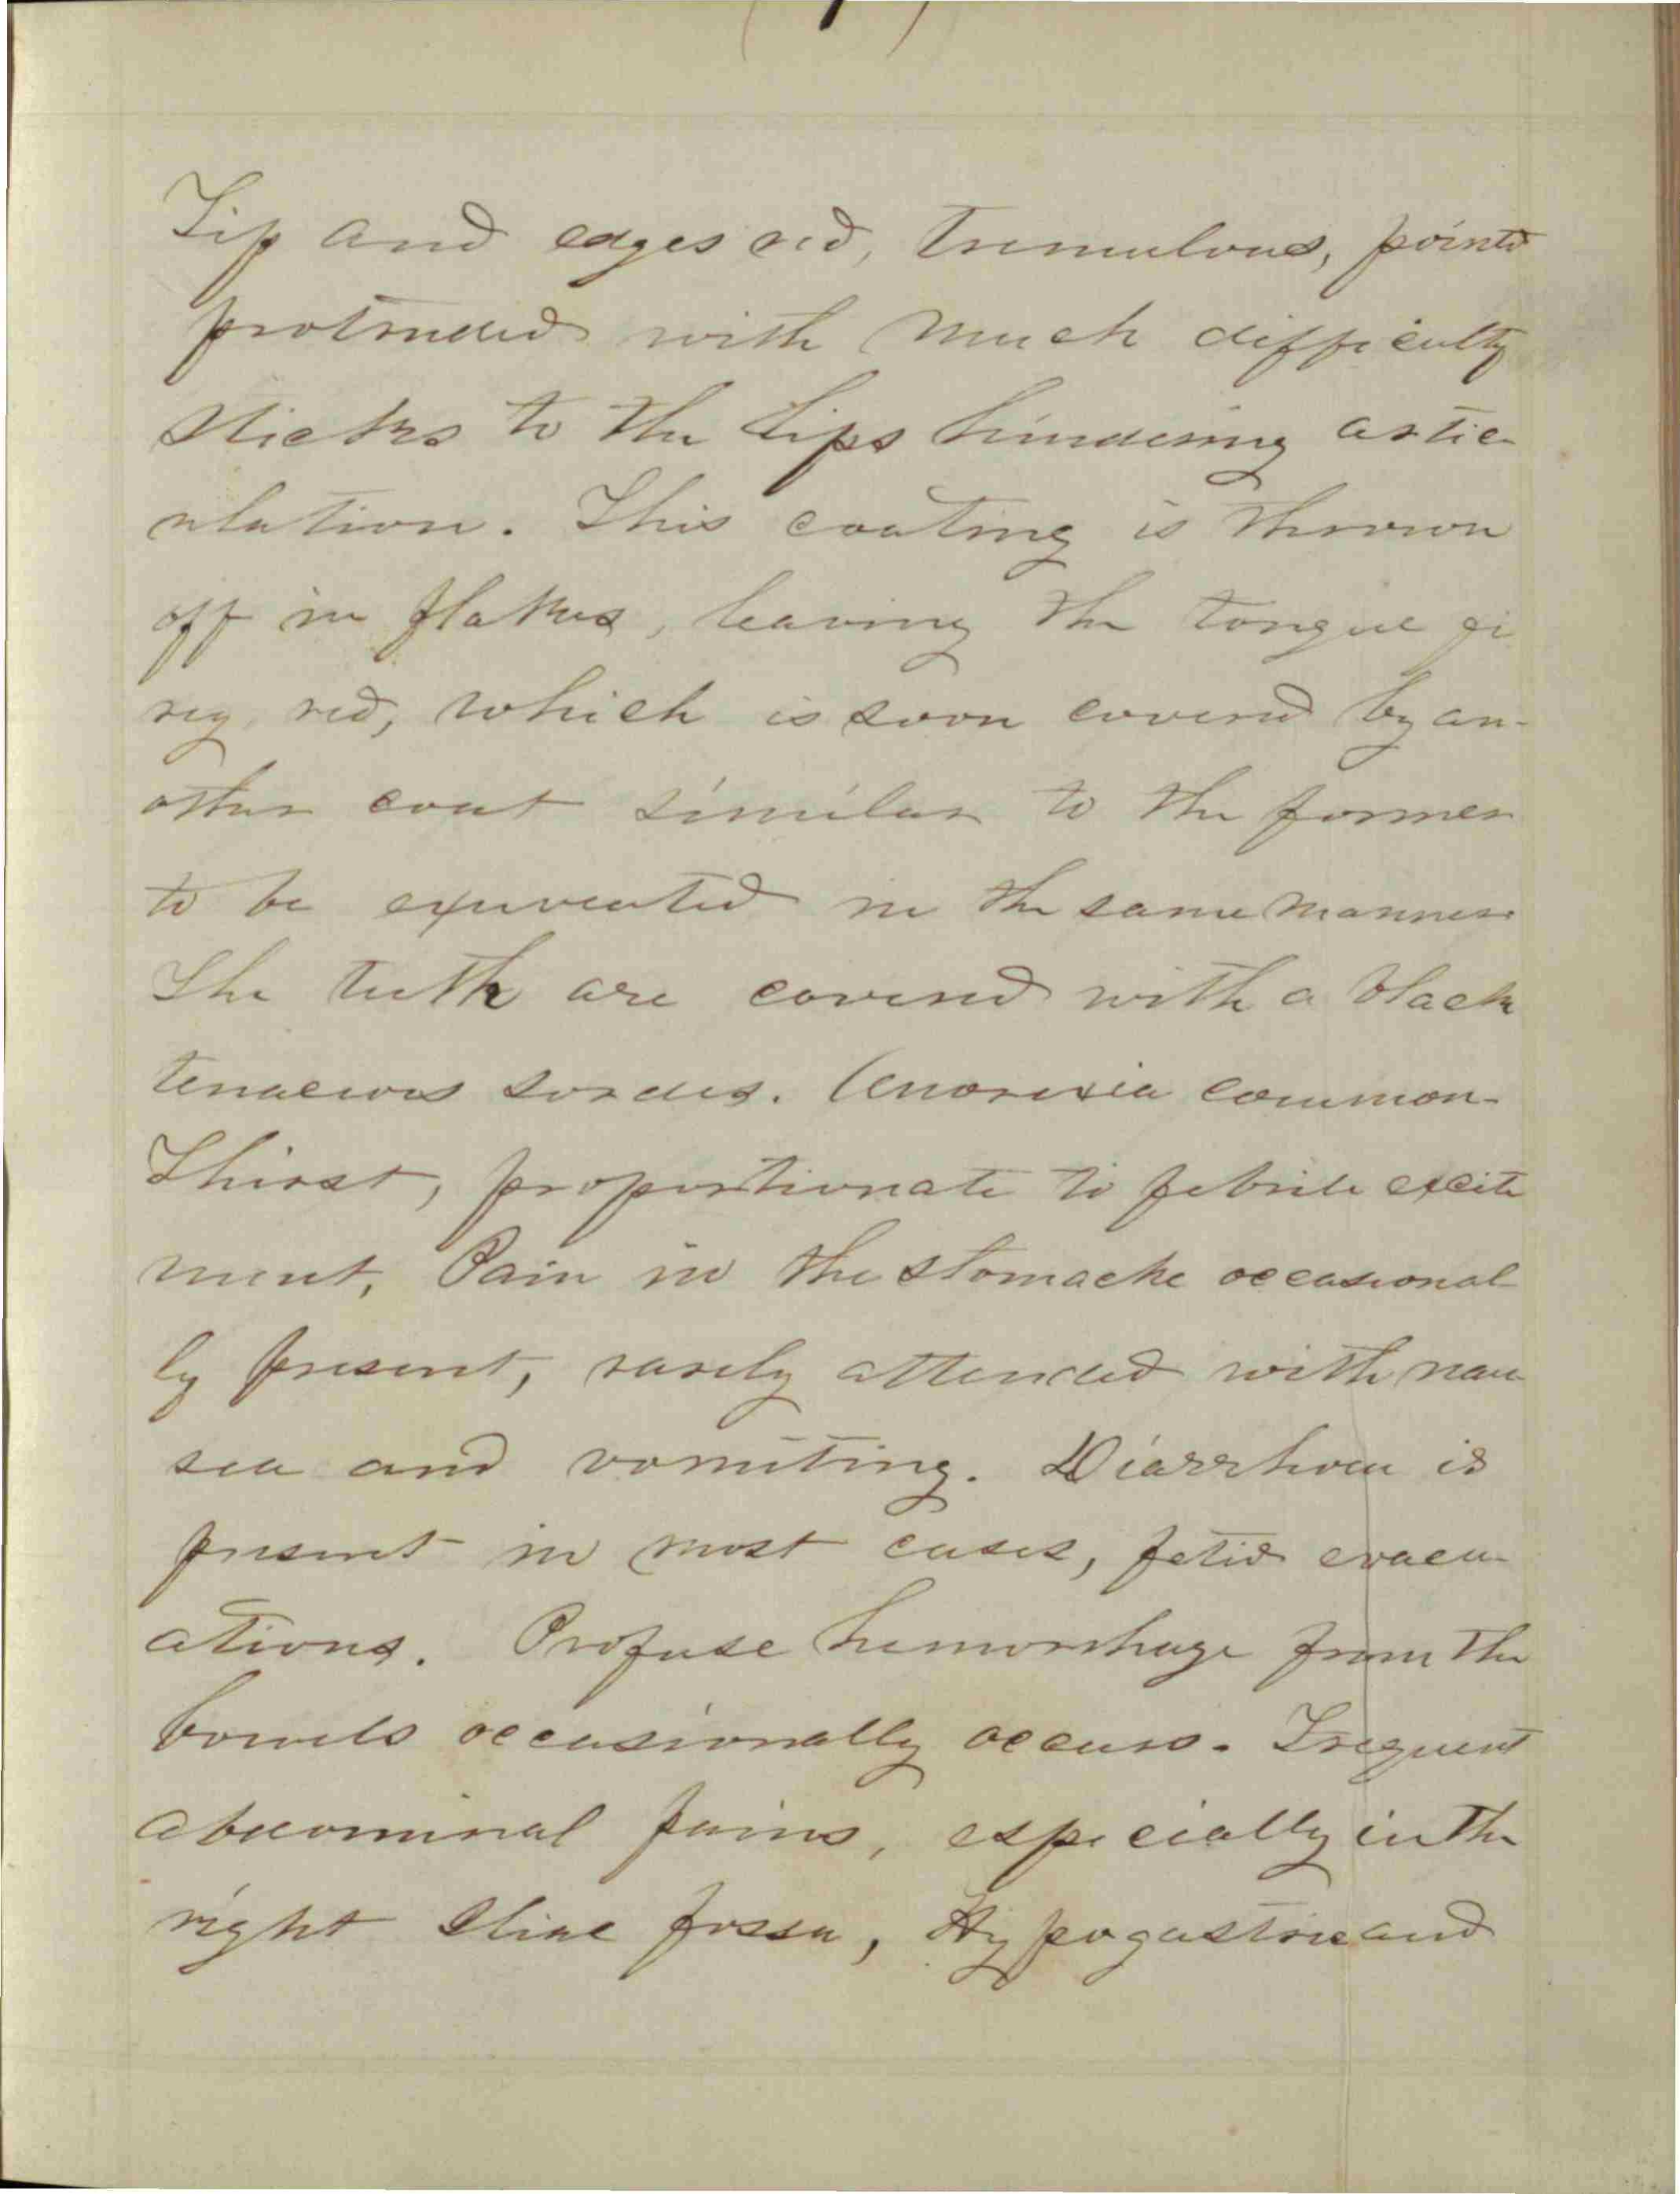 Tip and edges red, tremulous, pointd
protruded with much difficulty
sticks to the lips hindering artic-
ulation. This coating is thrown
off in flakes, leaving the tongue fi
rey red, which is soon covered by an-
other coat similar to the former
to be in the same manner
The teeth are covered with a black
tenacious sordes. Anorexia common.
Thirst, proportionate to febrile excite
ment, Pain in the stomache occasional
ly present, rarely attended with nau
sea and vomiting. Diarrhoea is
present in most cases, fetid evacu-
ations. Profuse hemorrhage from the
bowels occasionally occurs. Frequent
abdominal pains, especially in the
right Iliac fossa, Hypogastric and